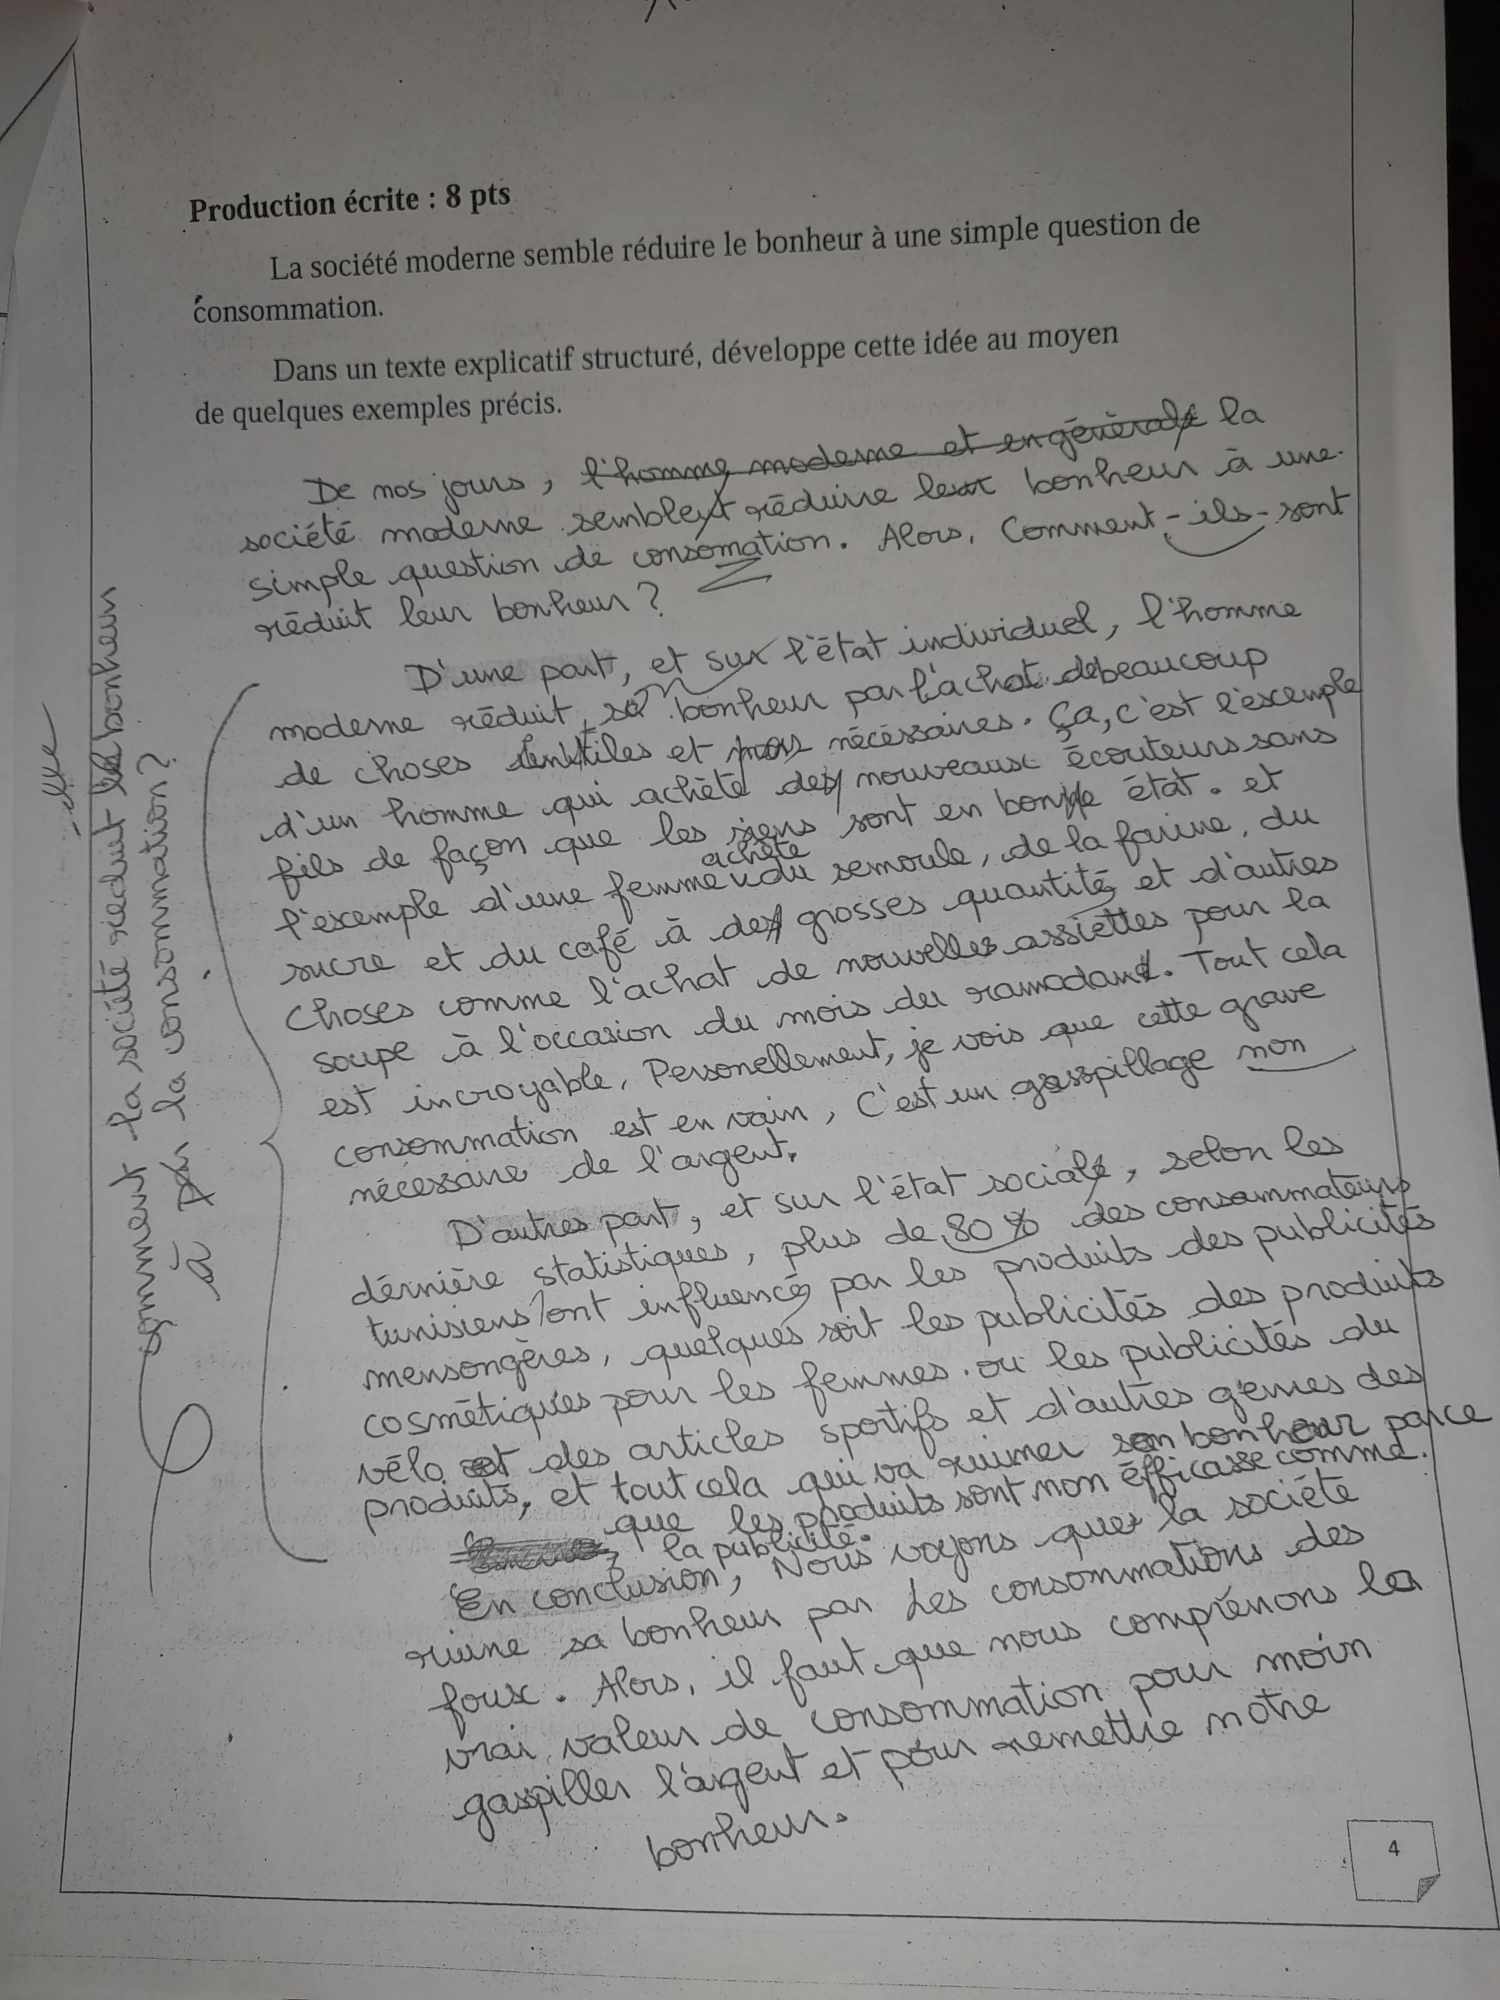 Production écrite : 8 pts
La société moderne semble réduire le bonheur à une simple question de
consommation.
Dans un texte explicatif structuré, développe cette idée au moyen
de quelques exemples précis.
De nos jours, l'homme moderne et en générale la
société moderne semble réduire leur bonheur à une
simple question de consomation. Alors, Comment-ils-sont
réduit leur bonheur ?
D'une part, et sur l'état individuel, l'homme
moderne réduit, sa bonheur par l'achat de beaucoup
de choses inutiles et nécéssaires. Ça, c'est l'exemple
d'un homme qui achète des nouveaux écouteurs sans
fils de façon que les siens sont en bonne état. et
achète
l'exemple d'une femme du semoule, de la farine, du
sucre et du café à des grosses quantité et d'autres
choses comme l'achat de nouvelles assiettes pour la
soupe à l'occasion du mois du ramadant. Tout cela
est incroyable, Personellement, je vois que cette grave
consommation est en vain, C'est un gaspillage non
nécessaire de l'argent.
D'autres part, et sur l'état sociale, selon les
dérnière statistiques, plus de 80 % des consommateurs
tunisiens ont influencé par les produits des publicités
mensongères, quelques soit les publicités des produits
cosmétiques pour les femmes ou les publicités du
vélo et des articles sportifs et d'autres genres des
produits, et tout cela qui va ruiner son bonheur parce
que les produits sont non éfficasse comme
la publicité.
En conclusion, Nous voyons que la société
ruine sa bonheur par les consommations des
foux. Alors, il faut que nous comprénons la
vrai valeur de consommation pour moin
gaspiller l'argent et pour remettre notre
bonheur.
Comment la société réduit le bonheur
à la consommation ?
-elle
4